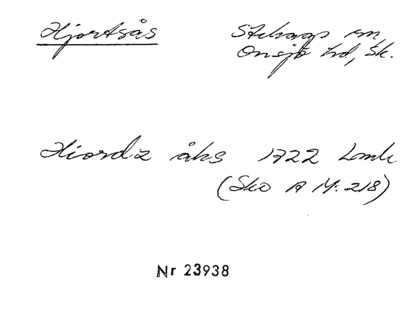 Hjortsås
Stehags sn,
Onsjö hd, Sk.
Hiordz åhs 1722 Lomk
(Sko A M. 218)
Nr 23938